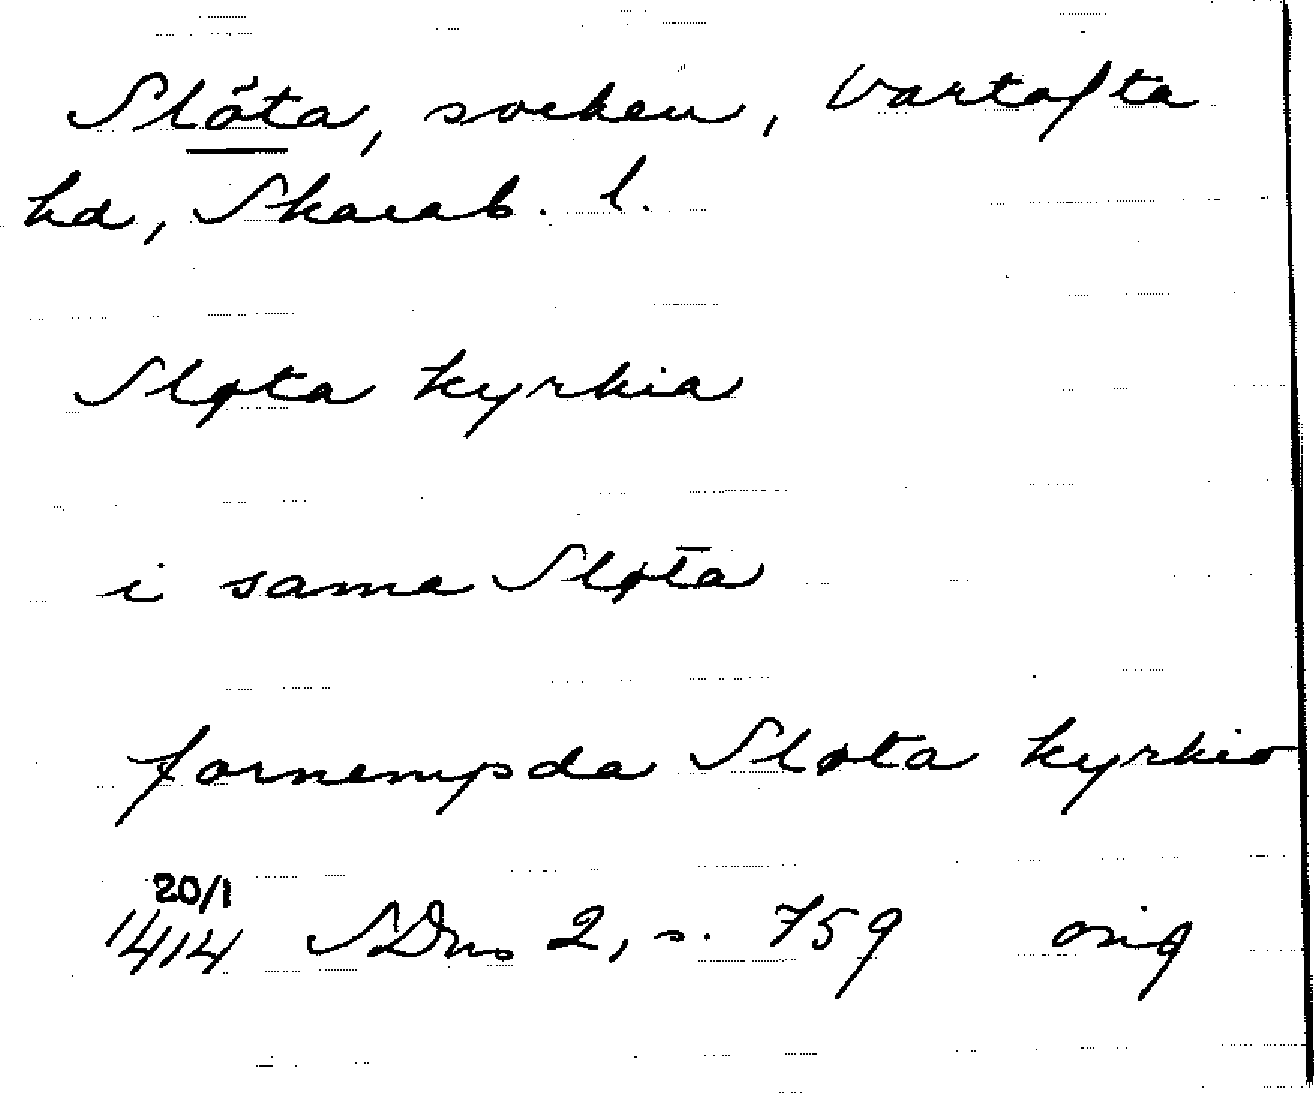 Slöta, socken, Vartofta
hd, Skarab. l.
Sløta kyrkia
i sama Sløta
fornempda Sløta kyrkio
20/1
1414 SDns 2, s. 759 orig